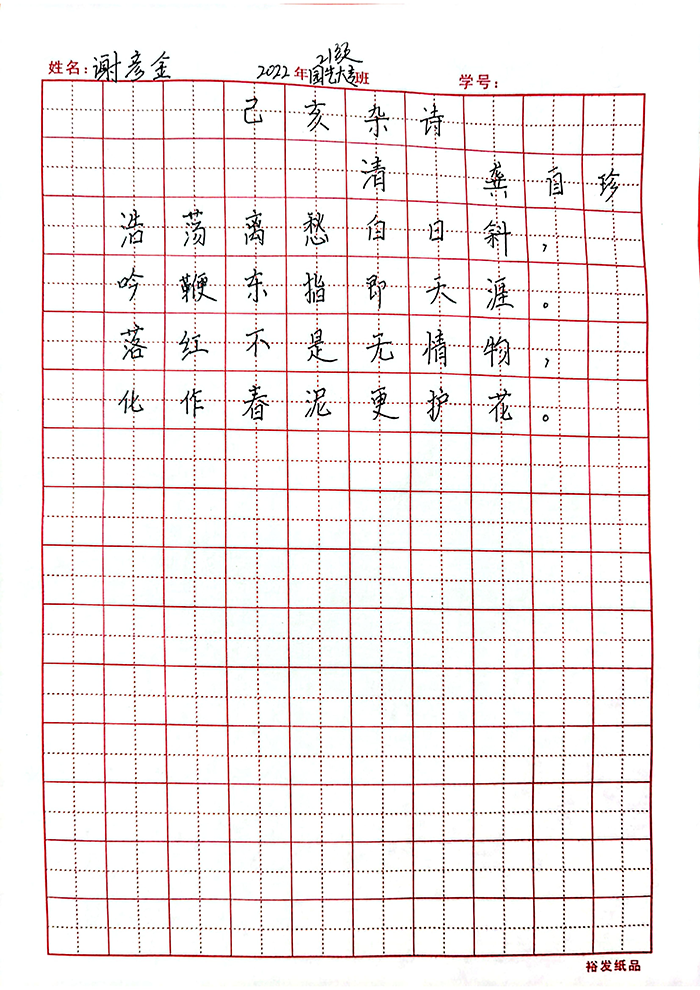 姓名:谢彦金 2022年 21级 国先大专班 学号:
己亥杂诗
清 龚自珍
浩荡离愁白日斜,
吟鞭东指即天涯。
落红不是无情物,
化作春泥更护花。
裕发纸品